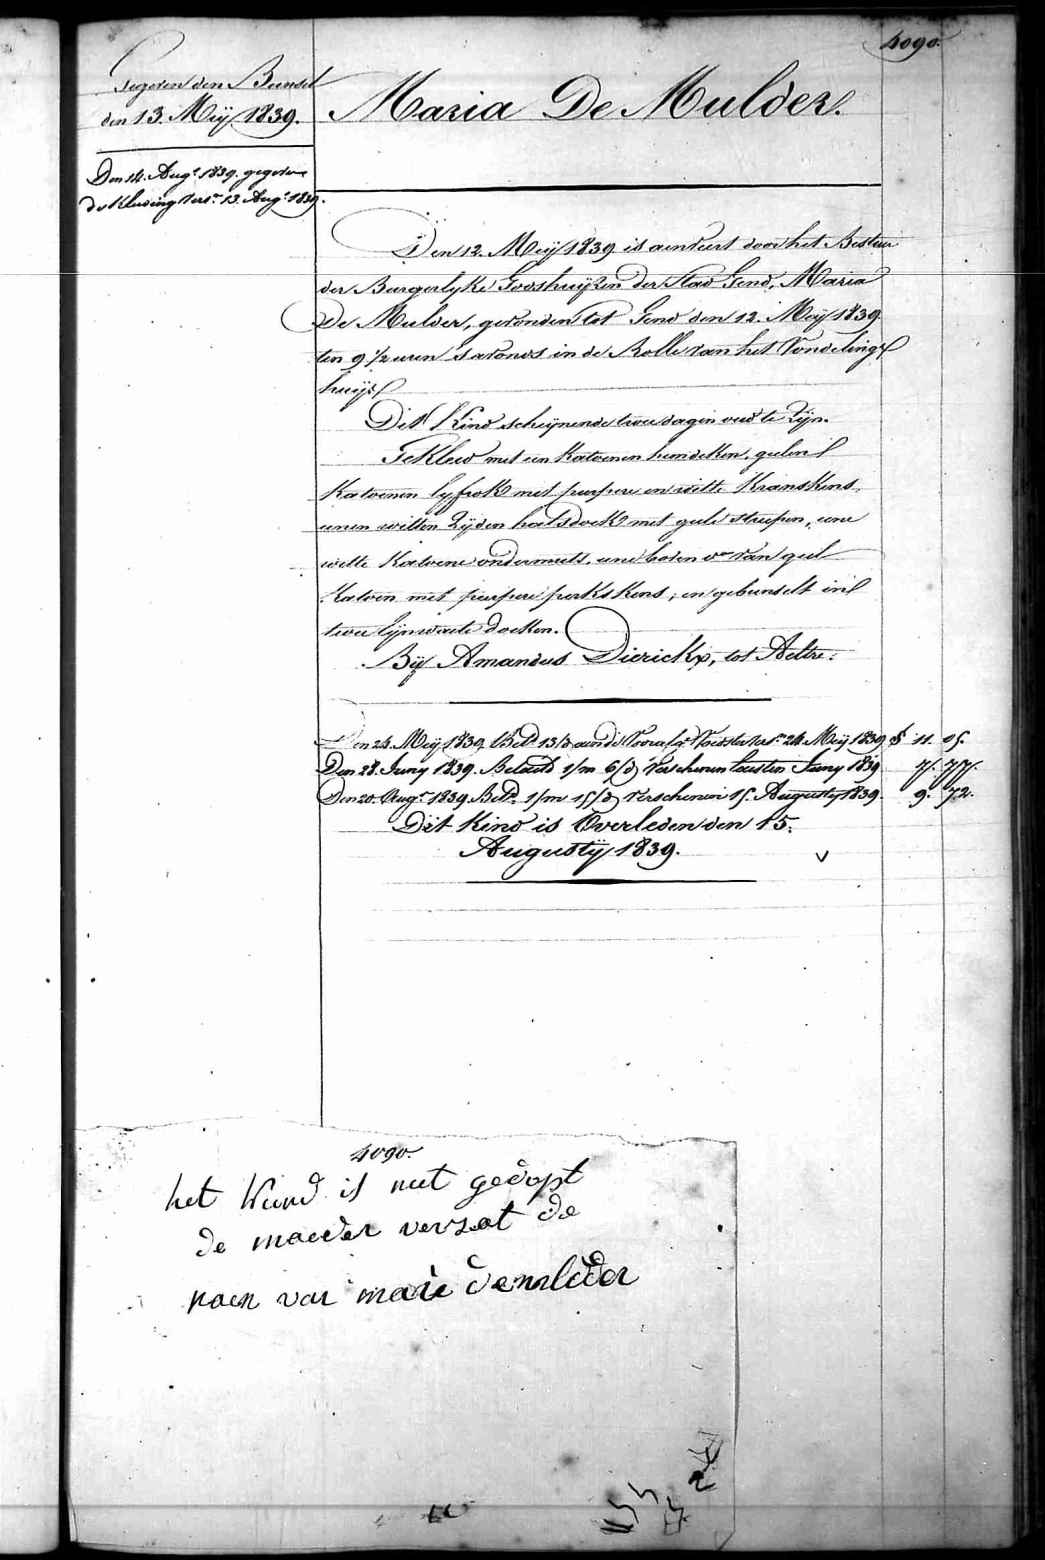 4090.
Gegeven den Bundel
den 13. Meÿ 1839.
Den 14. Augt. 1839. gegeven
de Kleeding verst. 13. Augt. 1839.
Maria De Mulder.
Den 12. Meÿ 1839 is aenveert door het Bestuur
der Burgerlyke Godshuÿzen der Stad Gend, Maria
De Mulder, gevonden tot Gend den 12. Meÿ 1839
ten 9 1/2 uren s'avonds in de Rolle van het Vondelings
huijs
Dit Kind scheijnende twee dagen oud te zijn.
Gekleed met een Katoenen hemdeken, geelen
Katoenen lyfrok met purpere en witte Kranskens,
eenen witten Zijden halsdoek met gele streepen, eene
witte Katoene ondermuts, eene boven dto van geel
Katoen met purpere perkskens; en gebunselt in
twee lijnwaete doeken.
Bÿ Amandus Dierickx, tot Aeltre.
Den 24. Meÿ 1839 Betd. 13/d aende Voedster verst. 24. Meÿ 1839 11. 05.
Den 28. Juny 1839. Betaeld 1/m 6/d verschenen lausten Juny 1839 7. 77.
Den 20. Augt. 1839 Betd. 1/m 15/d verschenen 15. Augusty 1839. 9. 72.
Dit Kind is Overleden den 15.
Augustÿ 1839.
4090.
het Kiend is niet gedopt
de moeder versot de
naen van marie demulder